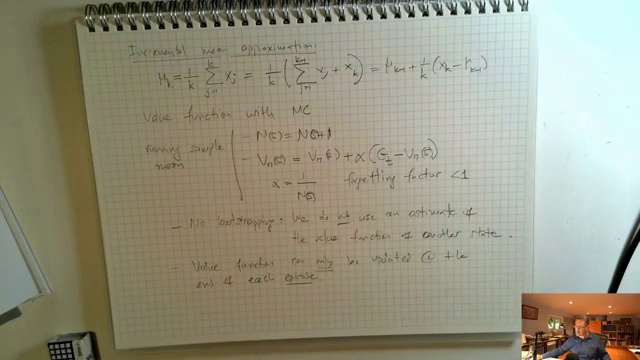 Incremental mean approximation:
μ_k = 1/k Σ_{j=1}^{k} x_j = 1/k ( Σ_{j=1}^{k-1} x_j + x_k ) = μ_{k-1} + 1/k (x_k - μ_{k-1})
Value function with MC
running sample mean
- N(s) = N(s)+1
- V_π(s) = V_π(s) + α (G_t - V_π(s))
α = 1/N(s) forgetting factor <1
- No bootstrapping: We do not use an estimate of
the value function of another state.
- Value function can only be updated @ the
end of each episode.